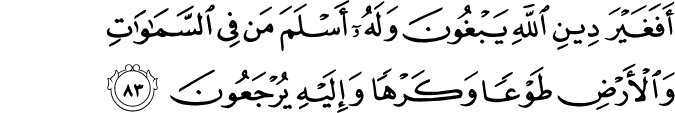 أَفَغَيْرَ دِينِ ٱللَّهِ يَبْغُونَ وَلَهُۥٓ أَسْلَمَ مَن فِى ٱلسَّمَٰوَٰتِ
وَٱلْأَرْضِ طَوْعًا وَكَرْهًا وَإِلَيْهِ يُرْجَعُونَ ٨٣